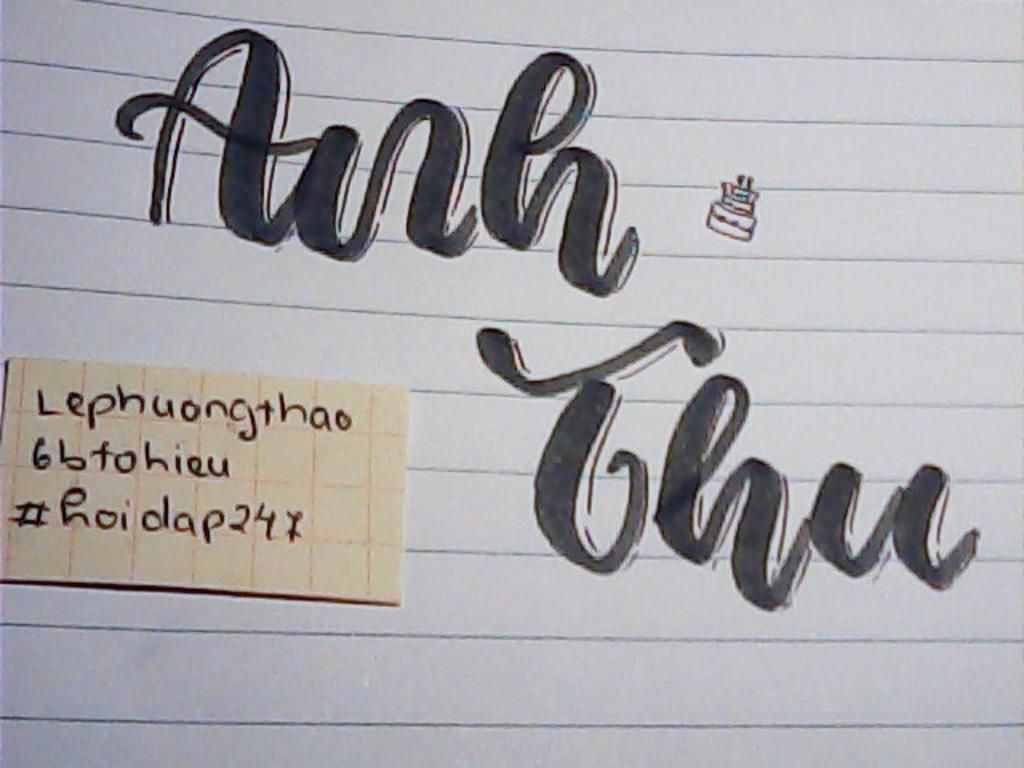 Anh
Thu
Lephuongthao
6btohieu
#hoidap247